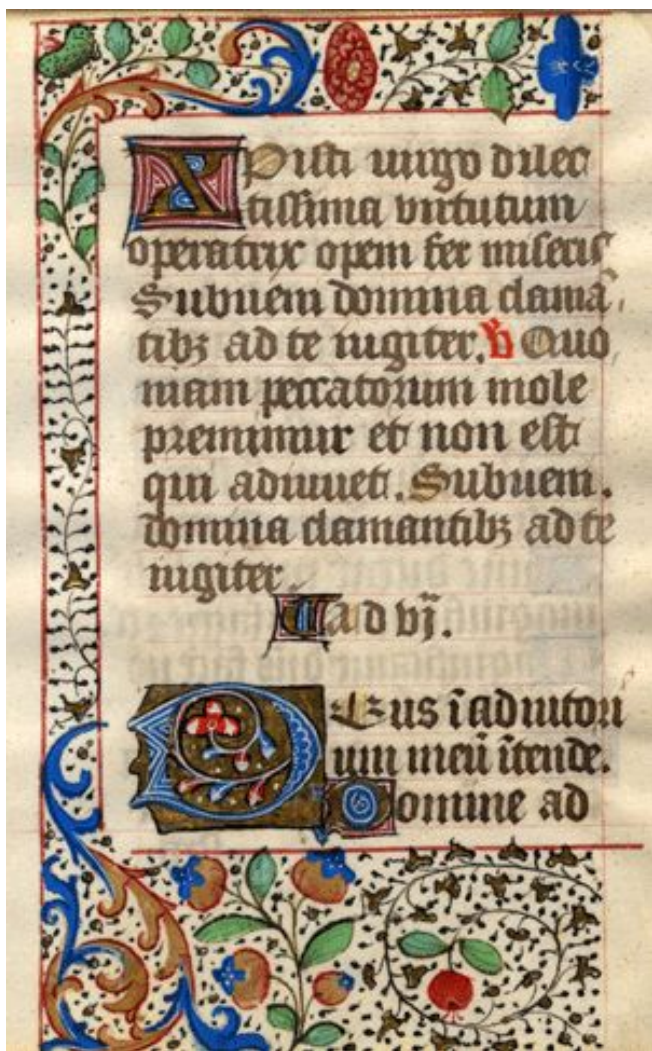 Xpisti uirgo dilec
tissima virtutum
operatrix opem fer miseris
Subueni domina clamã
tibꝫ ad te iugiter. V Quo
niam peccatorum mole
premimur et non est
qui adiuuet. Subueni.
domina clamantibꝫ ad te
iugiter.
ad vj.
Deus ĩ adiutori
um meũ ĩtende.
Domine ad